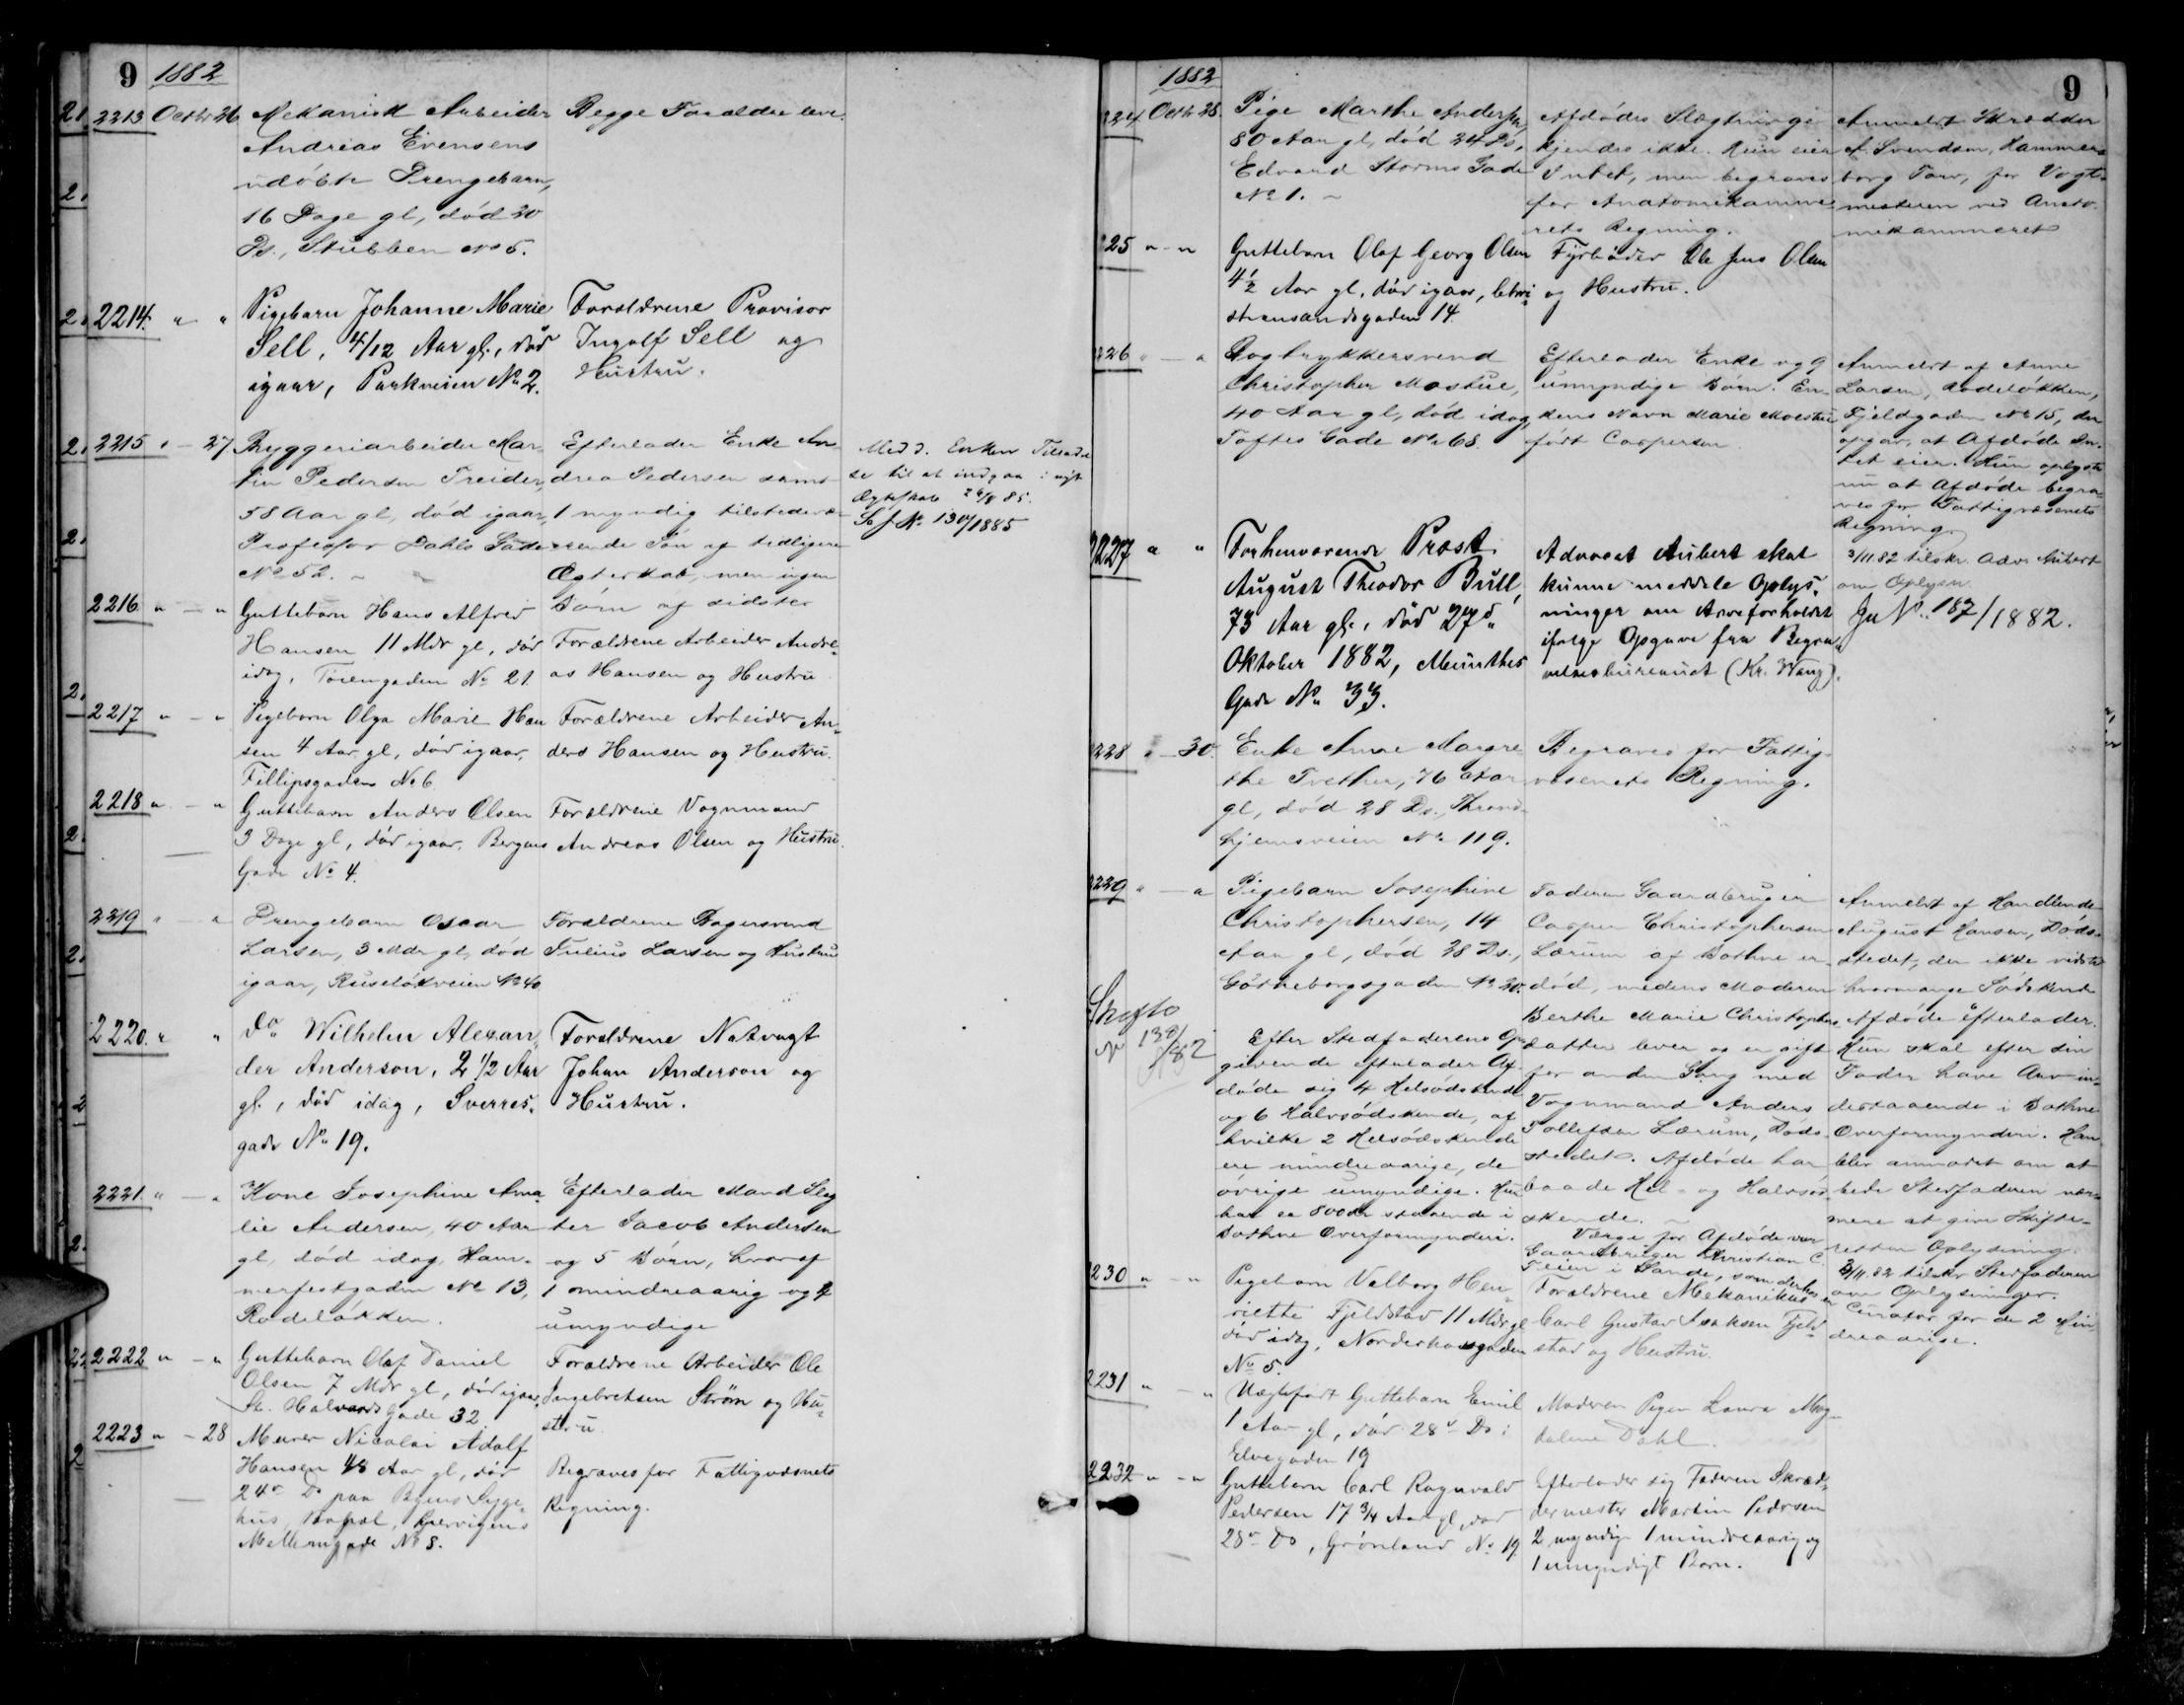 9 1882
2213 Octbr 26 Mekanisk Arbeider
Andreas Evensens
udöbte Drengebarn,
16 Dage gl, död 20
Ds., Stubben No 5.
Begge Forældre leve.
2214. " " Pigebarn Johanne Marie
Sell, 4/12 Aar gl., död
igaar, Parkveien No 2.
Forældrene Provisor
Ingolf Sell og
Hustru.
2215 " - 27 Bryggeriarbeider Mar-
tin Pedersen Treider,
58 Aar gl, död igaar,
Professor Dahls Gade
No 52.
Efterlader Enke An-
drea Pedersen samt
1 myndig tilstedevæ-
rende Sön af tidligere
Ægteskab, men ingen
Börn af sidste
Medd. Enken Tillad
se til at indgaa i nyt
Ægteskab 26/8 85.
Sef No 130/1885
2216 " - " Guttebarn Hans Alfred
Hansen 11 Mdr gl, död
idag, Töiengaden No 21.
Forældrene Arbeider Andre-
as Hansen og Hustru
2217 " - " Pigebarn Olga Marie Han
sen 4 Aar gl, död igaar,
Fillipsgaden No 6
Forældrene Arbeider An-
ders Hansen og Hustru.
2218 " - " Guttebarn Anders Olsen
3 Dage gl, död igaar, Bergens
Gade No 4.
Forældrene Vognmand
Andreas Olsen og Hustru.
2219 " - " Drengebarn Oscar
Larsen, 3 Mdr gl, död
igaar, Ruselökveien No 40
Forældrene Bagersvend
Julius Larsen og Hustru
2220. " " Do Wilhelm Alexan-
der Anderson, 2 1/2 Aar
gl., död idag, Sverres-
gade No 19.
Forældrene Natvagt
Johan Anderson og
Hustru.
2221. " - " Kone Josephine Ama
lie Andersen, 40 Aar
gl, död idag, Ham-
merfestgaden No 13,
Rodelökken.
Efterlader Mand Slag
ter Jacob Andersen
og 5 Börn, hvoraf
1 mindreaarig og 4
umyndige
2222 " - " Guttebarn Olaf Daniel
Olsen 7 Mdr gl, död igaar,
St. Halvards Gade 32.
Forældrene Arbeider Ole
Ingebretsen Ström og Hu-
stru.
2223 " - 28 Murer Nicolai Adolf
Hansen 48 Aar gl, död
24de Ds paa Byens Syge-
hus,
Mellemgade No 8.
Begraves for Fattigvæsnets
Regning.
1882 9
224 Octbr 28. Pige Marthe Andersen,
80 Aar gl, död 24 Ds,
Edvard Storms Gade
No 1.
Afdödes Slægtninge
kjendes ikke. Hun eier
Intet, men begraves
for Anatomikamme-
rets Regning.
Anmeldt Skrædder
A. Svendsen, Hammers-
borg Torv, for Vogt-
mesteren ved Anato-
mikammeret
225 " - " Guttebarn Olaf Georg Olsen
4 1/2 Aar gl, död igaar, Chri-
stiansandsgaden 14.
Fyrböder Ole Jens Olsen
og Hustru.
226 " - " Bogtrykkersvend
Christopher Mostue,
40 Aar gl, död idag,
Toftes Gade No 68.
Efterlader Enke og 9
umyndige Börn. En-
kens Navn Marie Mostue
född Caspersen
Anmeldt af Anne
Larsen, Rodelökken,
Fjeldgaden No 15, der
opgav, at Afdöde In-
tet eier. Hun oplyste
nu at Afdöde begra-
ves for Fattigvæsenets
Regning.
2227 " " Forhenværende Provst
August Theodor Bull,
73 Aar gl., död 27de
Oktober 1882, Munthes
Gade No 33.
Advocat Aubert skal
kunne meddele Oplys-
ninger om Arveforholdet
ifølge Opgave fra Begra-
velsesbureauet (Kr. Wang).
3/11 82 tilskr. Adv. Aubert
om Oplysn.
Ja No. 187/1882.
228 " - 30. Enke Anne Margre
the Tvether, 76 Aar
gl, död 28 Ds., Thrond-
hjemsveien No 119.
Begraves for Fattig-
væsenets Regning.
2229 " - " Pigebarn Josephine
Christophersen, 14
Aar gl, död 28 Ds.,
Götheborgsgaden No 20.
Skifte
No 138/82
Efter Stedfaderens Op-
givende efterlader Af-
döde sig 4 Helsödskende
og 6 Halvsödskende, af
hvilke 2 Helsödskende
ere mindreaarige, de
övrige umyndige. Hun
har ca 800 Kr staaende i
Bothne Overformynderi.
Faderen Gaardbruger
Casper Christophersen
Lærum af Bothne er
död, medens Moderen
Berthe Marie Christophers-
datter lever og er gift
for anden Gang med
Vognmand Anders
Tollefsen Lærum, Döds-
stedet. Afdöde har
baade Hel- og Halvsö-
skende.
Værge for Afdöde var
Gaardbruger Christian C.
Teien i Sande, som derhos er
Curator for de 2 Min
dreaarige.
Anmeldt af Handlende
August Hansen, Döds-
stedet, der ikke vidste
hvormange Södskende
Afdöde efterlader.
Hun skal efter sin
Fader have Arv in-
destaaende i Bothne
Overformynderi. Han
blev anmodet om at
bede Stedfaderen nær-
mere at give Skifte-
retten Oplysning.
3/11 82 tilskr Stedfaderen
om Oplysninger.
2230 " - " Pigebarn Valborg Hen-
riette Fjeldstad 11 Mdr gl
död idag, Norderhovsgaden
No 5.
Forældrene Mekanikus
Carl Gustav Isaksen Fjeld-
stad og Hustru.
2231 " - " Uægtefödt Guttebarn Emil
1 Aar gl, död 28de Ds i
Elvegaden 19
Moderen Pigen Laura Mag-
dalene Dahl.
2232 " - " Guttebarn Carl Ragnvald
Pedersen 17 3/4 Aar gl, död
28de Ds, Grönland No 19
Efterlader sig Faderen Skræd-
dermester Martin Pedersen
2 myndige 1 mindreaarig og
1 umyndigt Barn.